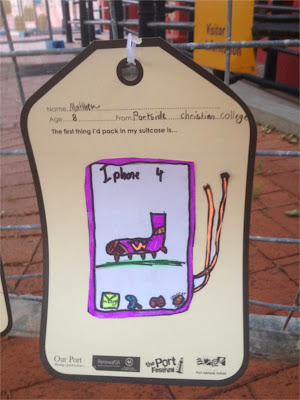 Visitor
Name: Matthew
Age 8 From Portside christian college
The first thing I'd pack in my suitcase is...
Iphone 4
Our Port
RenewalSA
the Port
Festival